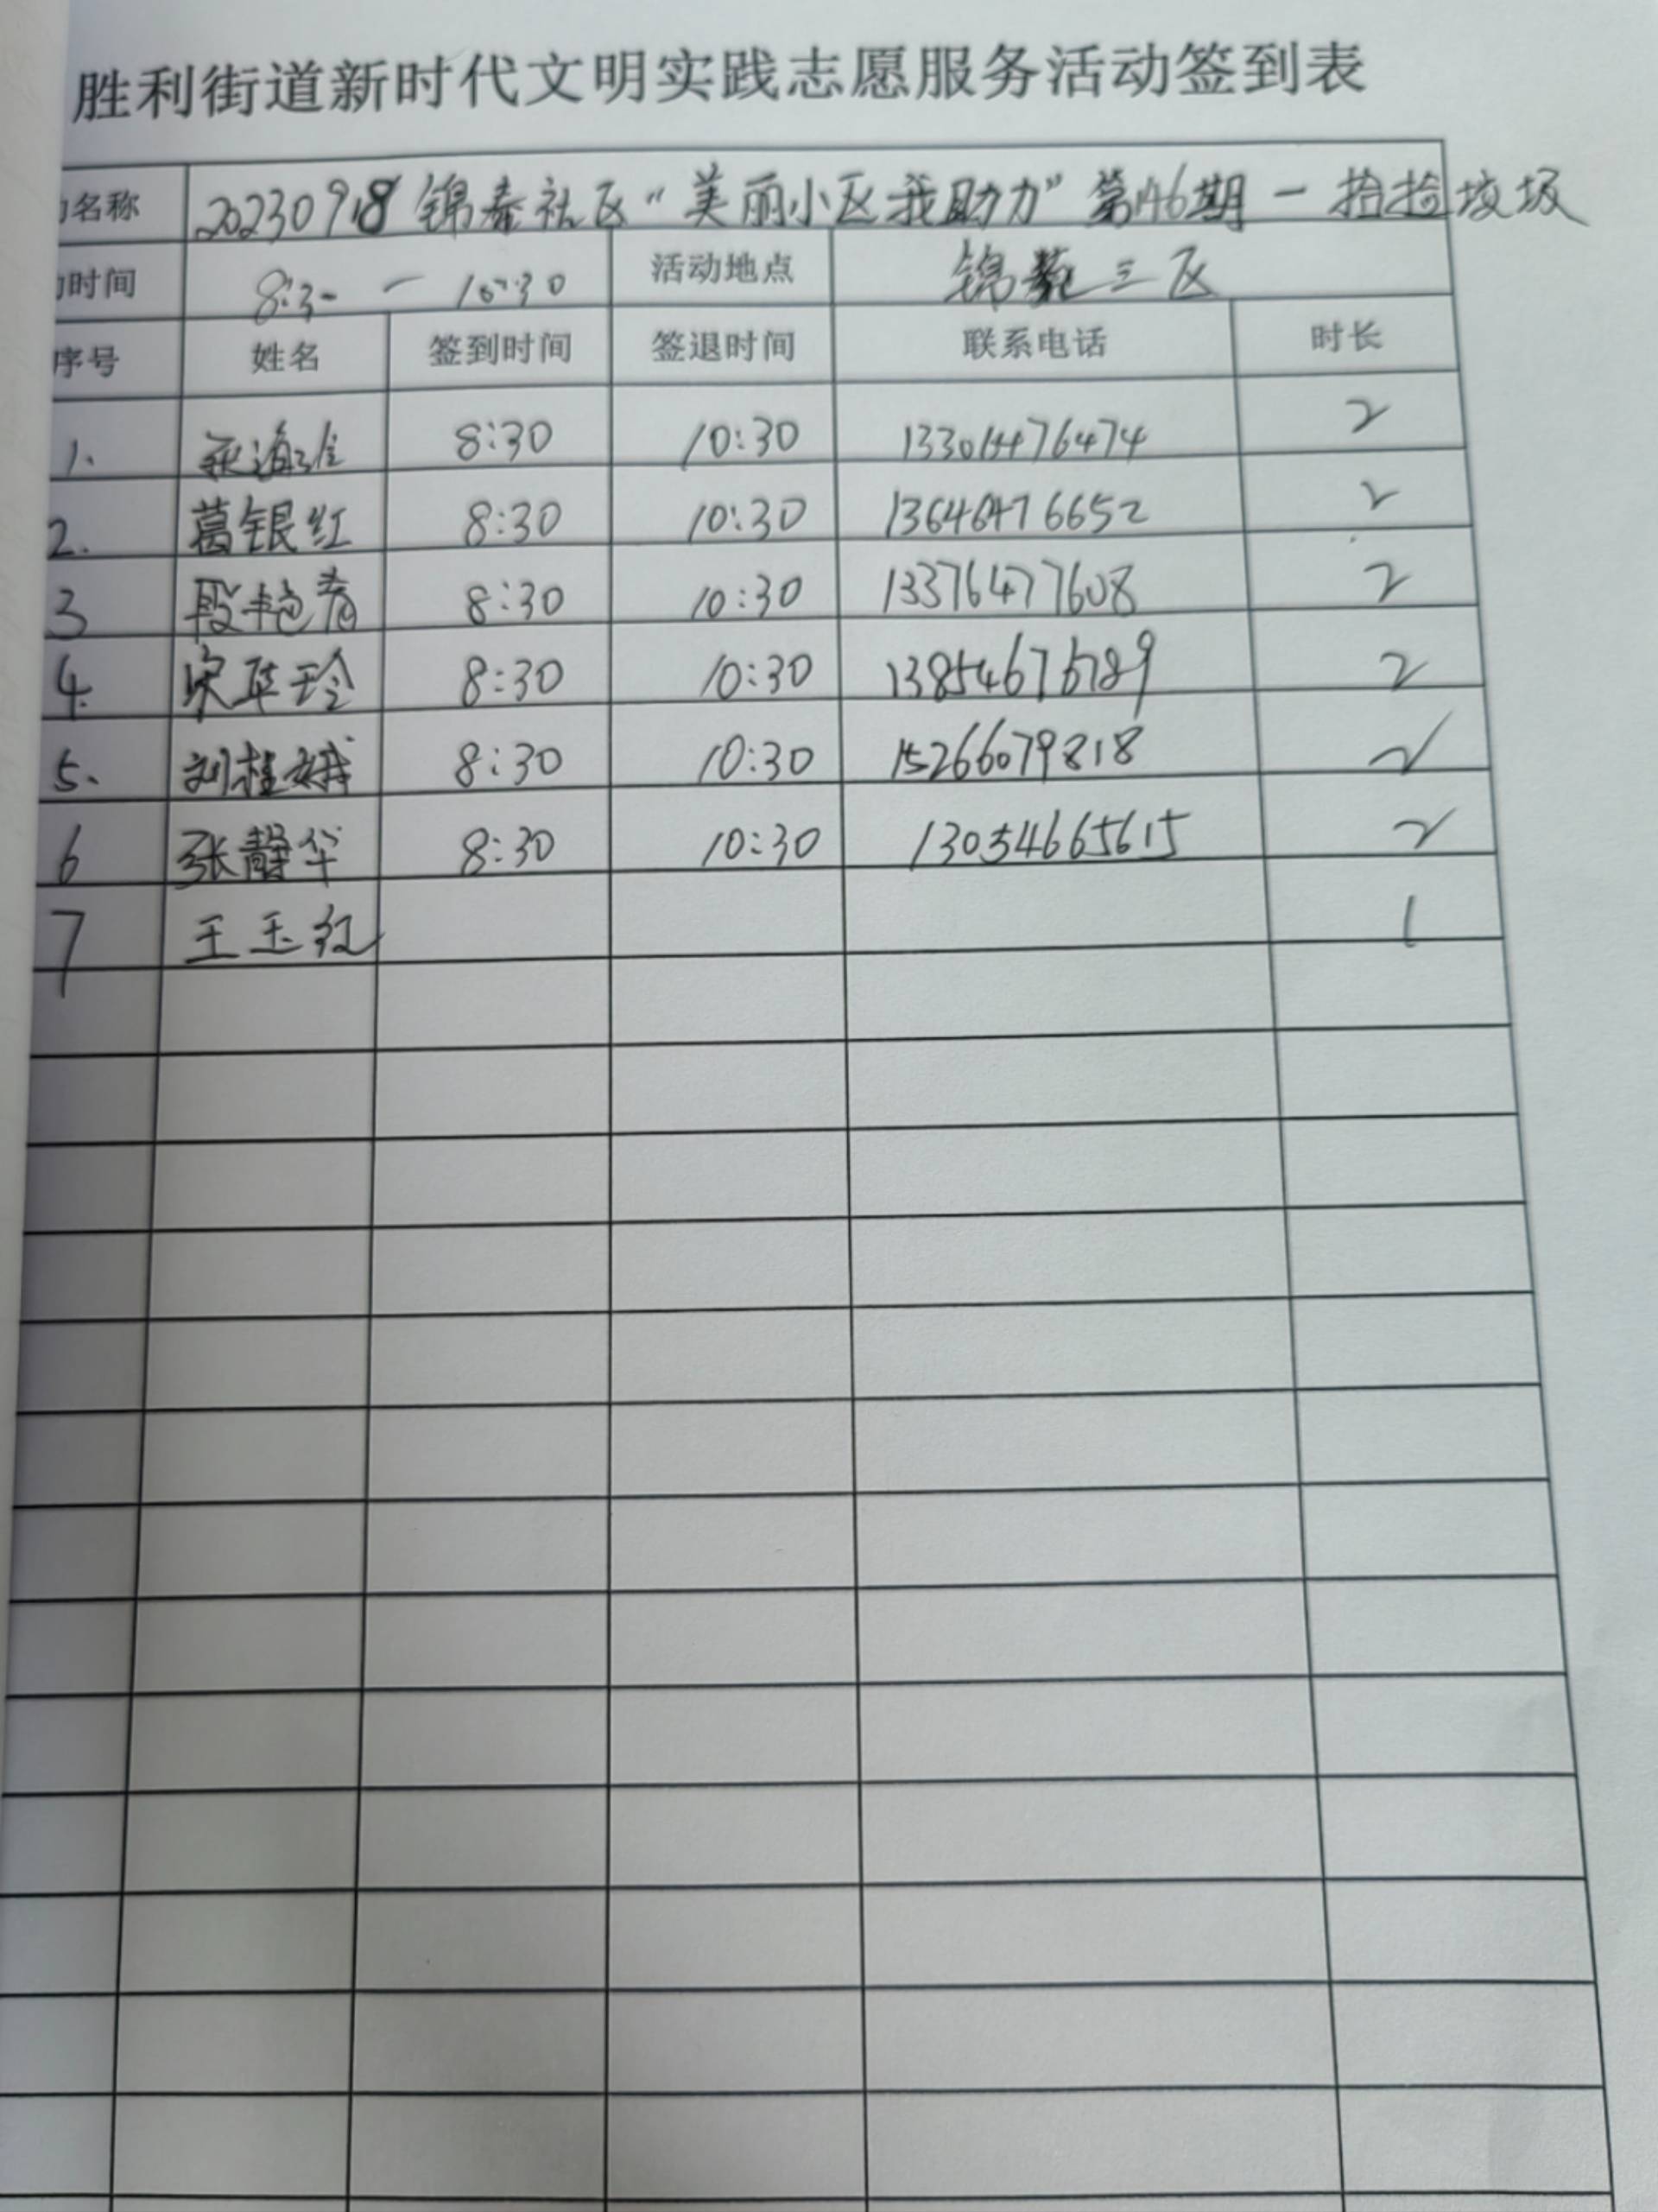 胜利街道新时代文明实践志愿服务活动签到表
名称 20230918 锦泰社区“美丽小区我助力”第146期一捡捡垃圾
时间 8:30 一 10:30 活动地点 锦苑三区
序号 姓名 签到时间 签退时间 联系电话 时长
1. 8:30 10:30 2
2. 葛银红 8:30 10:30 13646476652 2
3 段艳春 8:30 10:30 13376477608 2
4. 宋华玲 8:30 10:30 2
5. 刘桂娥 8:30 10:30 15266079818 2
6 张静华 8:30 10:30 13054665615 2
7 王玉红 1